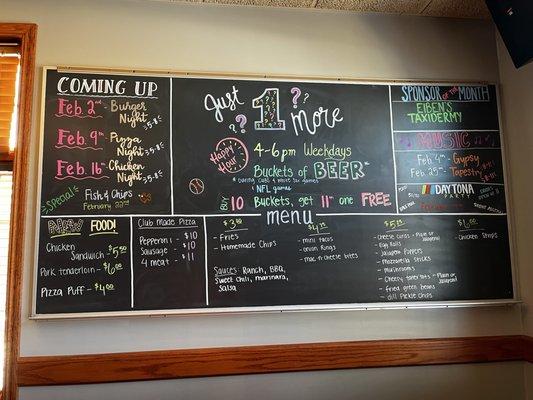 COMING UP
Feb. 2nd - Burger Night 5-8
Feb. 9th - Pizza Night 5-8
Feb. 16th - Chicken Night 5-8
SPECIAL: Fish & Chips
February
Just 1 More
? ? ?
Happy Hour!
4-6pm Weekdays
Buckets of BEER
NFL games
BUY 10 Buckets, get 11th one FREE
SPONSOR OF THE MONTH
EIBEN'S TAXIDERMY
MUSIC
Feb. 4th - Gypsy
Feb. 25th - Tapestry
DAYTONA
PARTY
menu
FOOD!
Chicken Sandwich - $5.50
Pork tenderloin - $6.00
Pizza Puff - $4.00
Club Made Pizza
Pepperoni - $10
Sausage - $10
4 meat - $11
$3.00
- Fries
- Homemade Chips
Sauces: Ranch, BBQ,
Sweet chili, marinara,
Salsa
$4.00
- mini tacos
- onion Rings
- mac n cheese bites
$5.00
- Cheese curds - Plain or Jalapeno
- Egg Rolls
- Jalapeno Poppers
- Mozzarella Sticks
- mushrooms
- Cheesy tater tots - Plain or Jalapeno
- fried green beans
- dill Pickle Chips
$6.00
- Chicken Strips